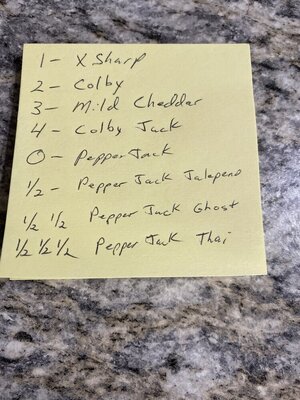 1 - X Sharp
2 - Colby
3 - Mild Cheddar
4 - Colby Jack
0 - Pepper Jack
1/2 - Pepper Jack Jalepeno
1/2 1/2 Pepper Jack Ghost
1/2 1/2 1/2 Pepper Jack Thai